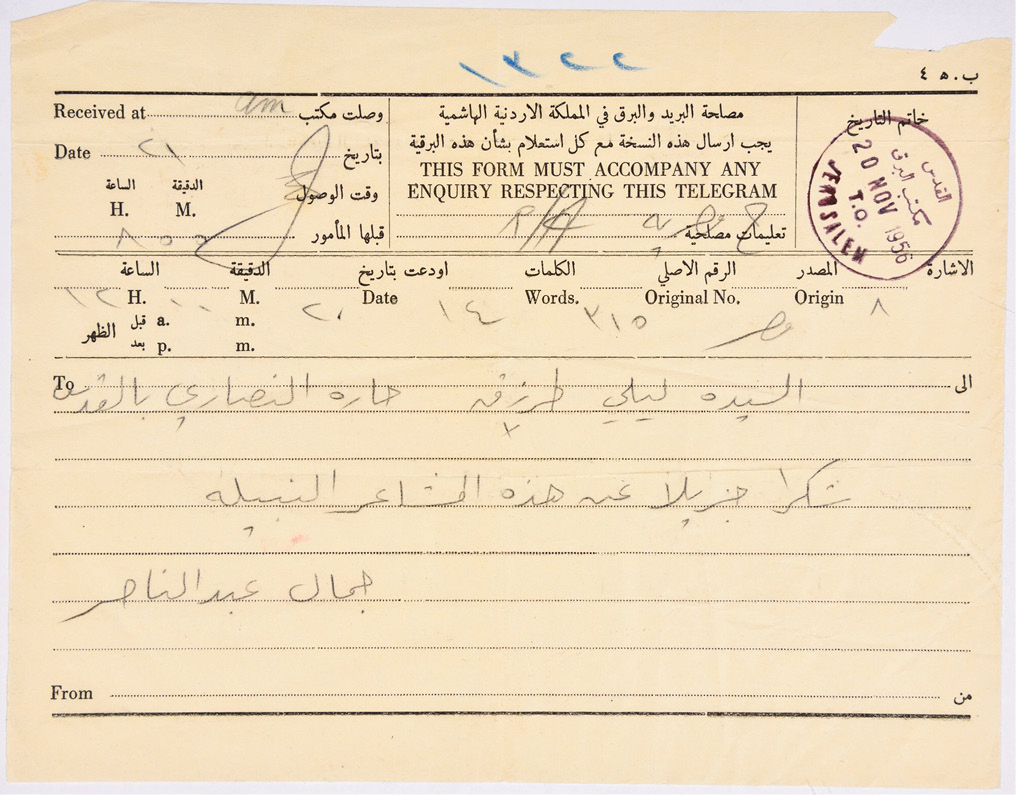 ١٣٢٢
ب. ه ٤
Received at am وصلت مكتب
Date ٢١ بتاريخ
الساعة الدقيقة
H. M. وقت الوصول
قبلها المأمور
مصلحة البريد والبرق في المملكة الاردنية الهاشمية
يجب ارسال هذه النسخة مع كل استعلام بشأن هذه البرقية
THIS FORM MUST ACCOMPANY ANY
ENQUIRY RESPECTING THIS TELEGRAM
تعليمات مصلحية
خاتم التاريخ
القدس
مكتب البرق
20 NOV 1956
T.O.
JERUSALEM
الاشارة المصدر الرقم الاصلي الكلمات اودعت بتاريخ الدقيقة الساعة
Origin Original No. Words. Date M. H.
٨ مصر ٣١٥ ١٤ ٢٠ ١٠ ١٢
الظهر قبل a. m.
بعد p. m.
To الى
السيده ليلي طرزي حاره النصاري بالقدس
شكرا جزيلا عن هذه المشاعر النبيله
جمال عبد الناصر
From من